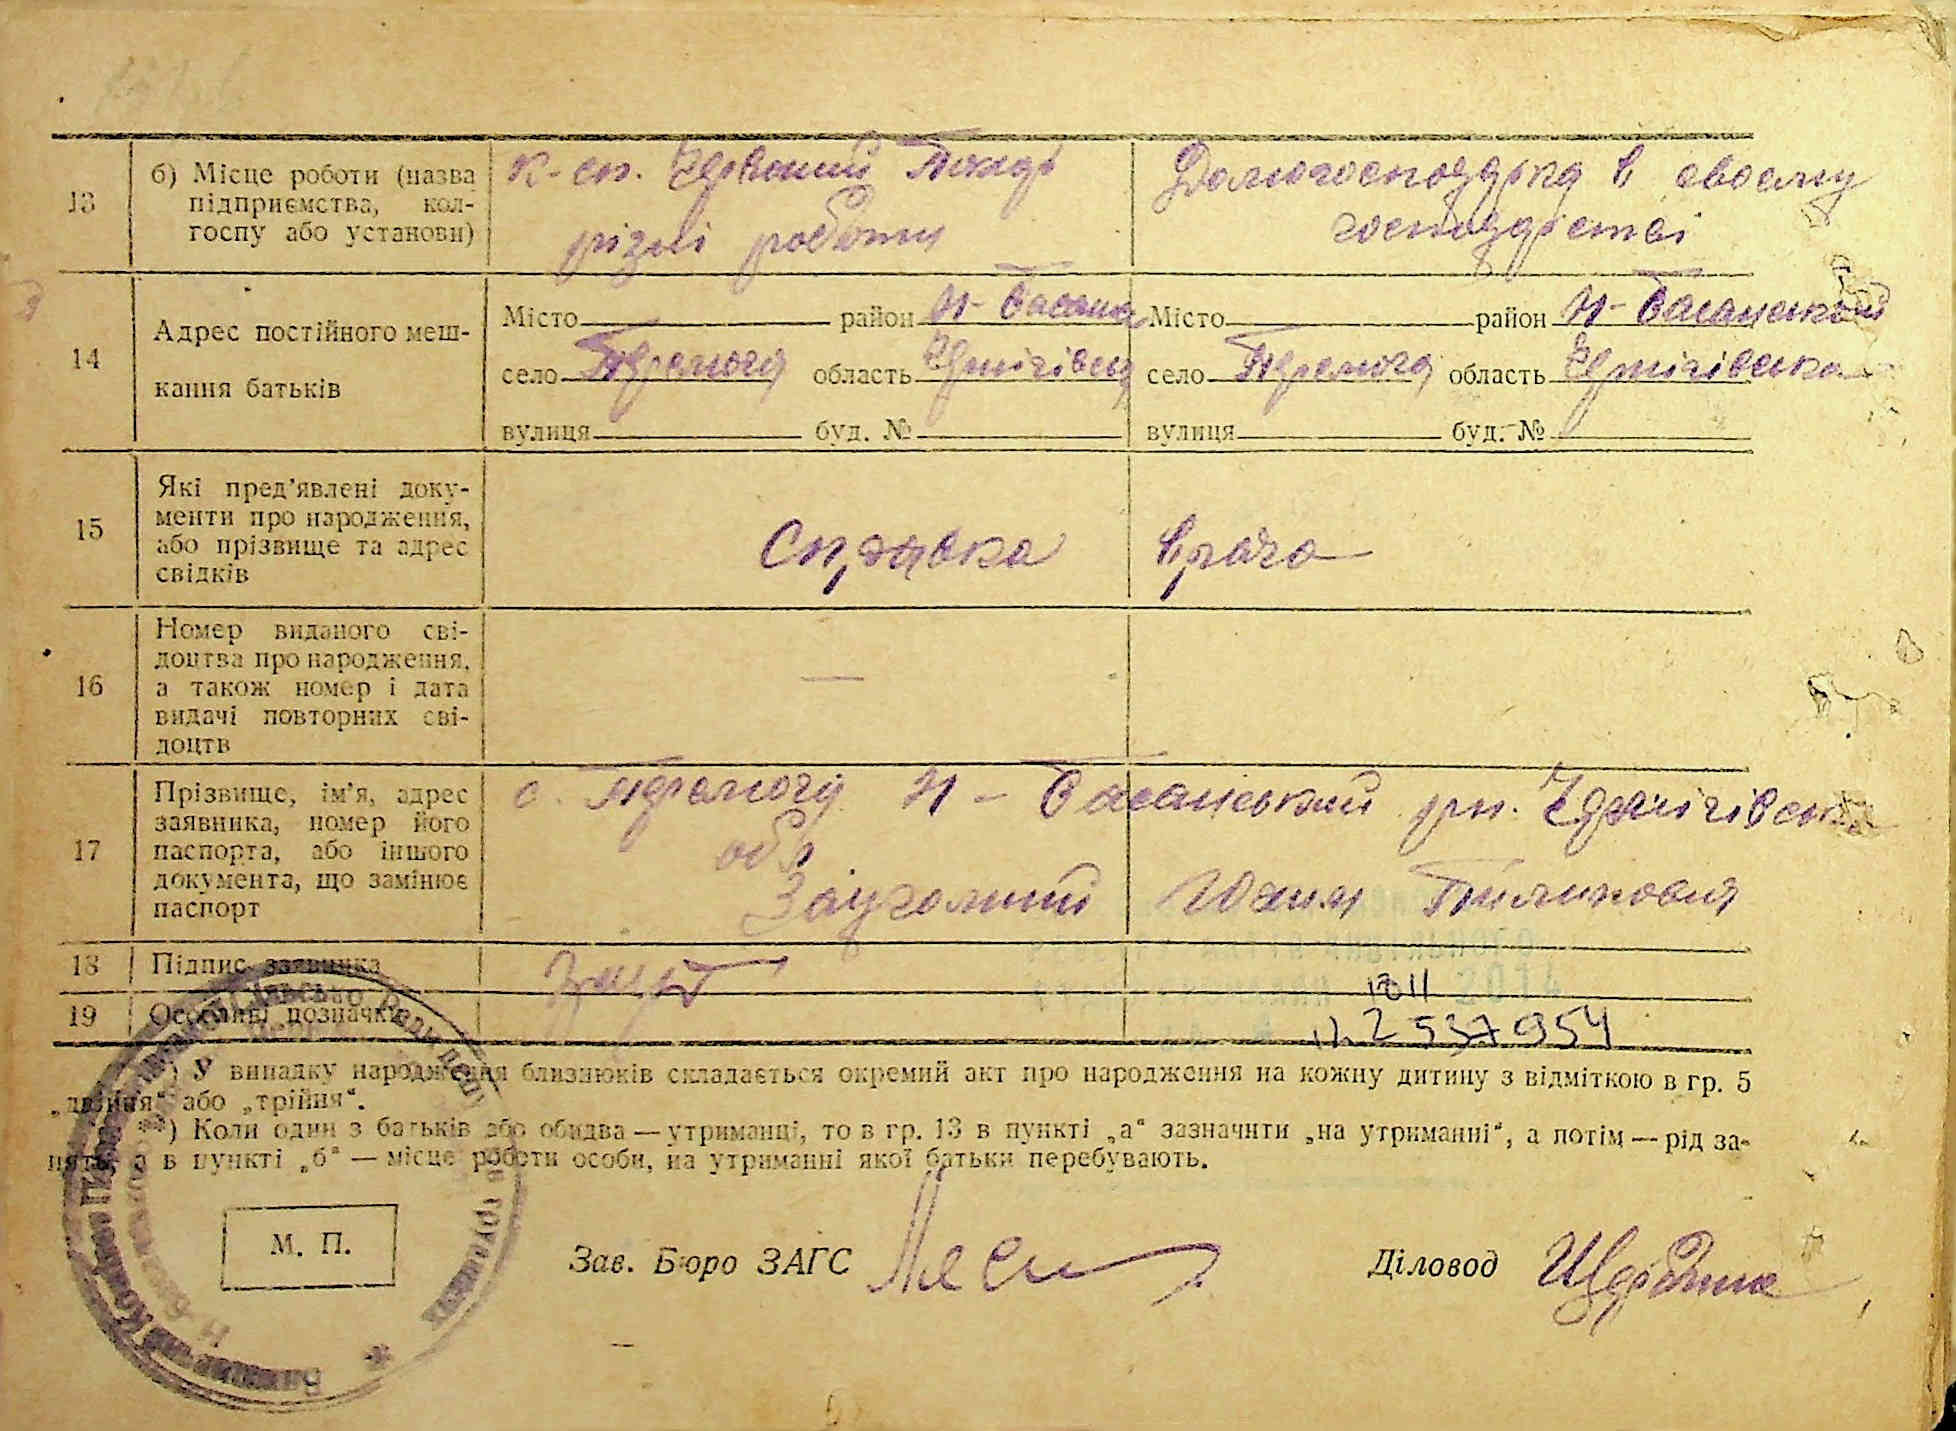 13
б) Місце роботи (назва
підприємства, кол-
госпу або установи)
к-сп. Червоний
різні роботи
Домогосподарка в своєму
господарстві
14
Адрес постійного меш-
кання батьків
Місто район Н-Басанськ
село Перемога область Чернігівськ
вулиця буд. №
Місто район Н-Басанський
село Перемога область Чернігівська
вулиця буд. №
15
Які пред'явлені доку-
менти про народження,
або прізвище та адрес
свідків
Справка врача
16
Номер виданого сві-
доцтва про народження,
а також номер і дата
видачі повторних сві-
доцтв
—
17
Прізвище, ім'я, адрес
заявника, номер його
паспорта, або іншого
документа, що замінює
паспорт
с. Перемога Н-Басанський рн. Чернігівська
обл
Юхим
18
Підпис заявника
19
Особливі позначки
2537954
*) У випадку народження близнюків складається окремий акт про народження на кожну дитину з відміткою в гр. 5
„двійня“ або „трійня“.
**) Коли один з батьків або обидва — утриманці, то в гр. 13 в пункті „а“ зазначити „на утриманні“, а потім — рід за-
нять, а в пункті „б“ — місце роботи особи, на утриманні якої батьки перебувають.
М. П.
Зав. Бюро ЗАГС
Діловод